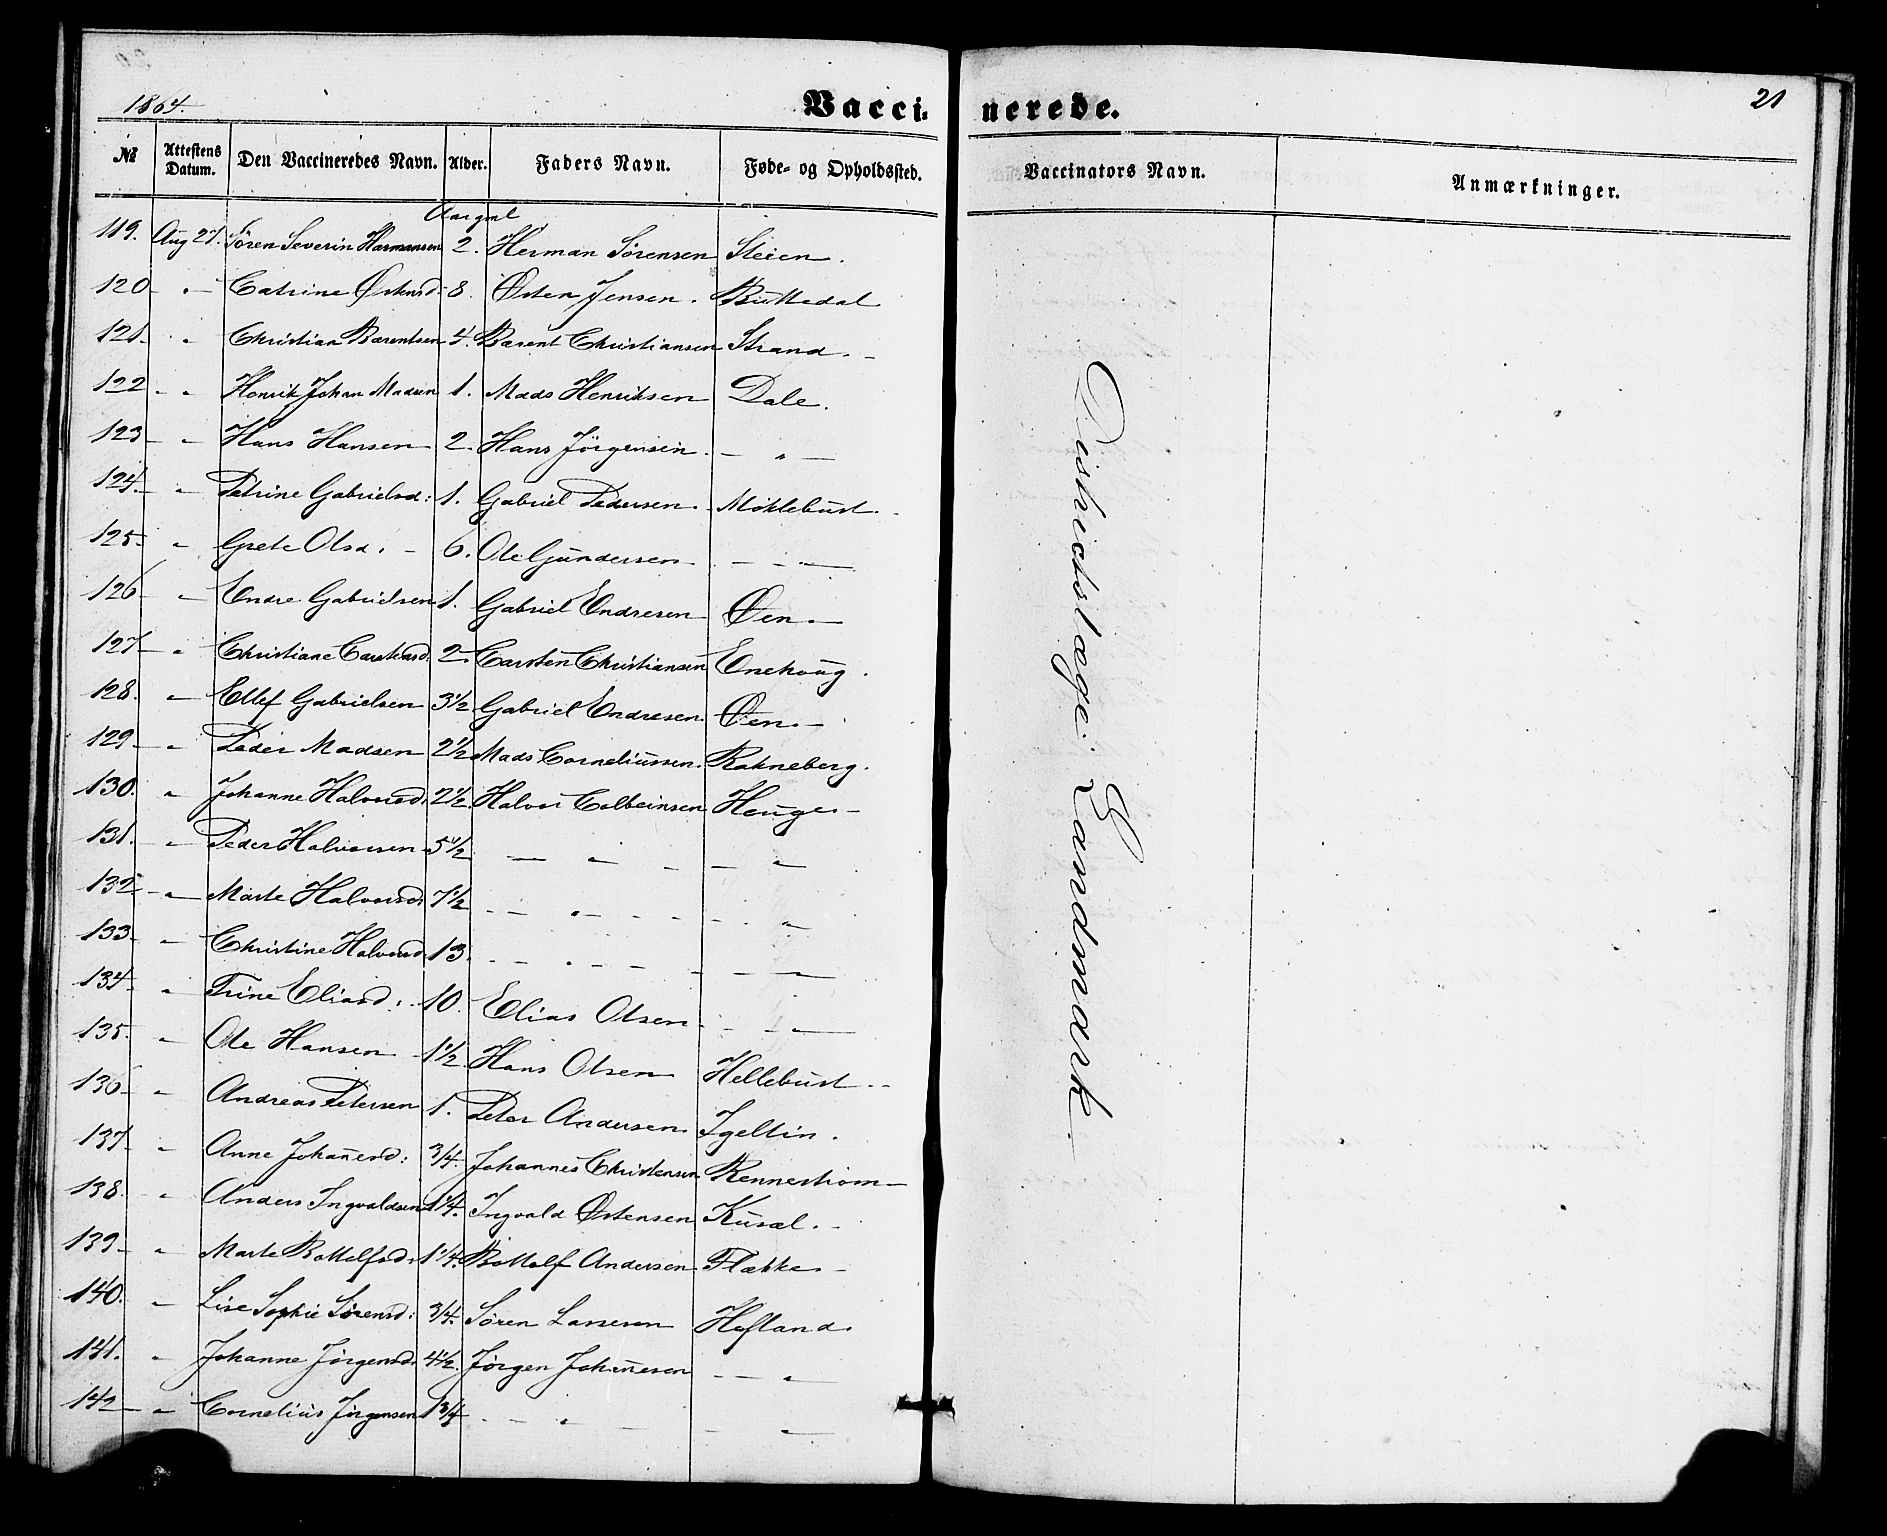 1864.
Vacci- nerede.
21
№ Attestens Datum. Den Vaccineredes Navn. Alder. Faders Navn. Føde- og Opholdssted. Vaccinators Navn. Anmærkninger.
Aar gml
119. Aug 27. Sören Severin Harmansen 2. Herman Sörensen Steien.
120 - " - Catrine Østensd: 8. Østen Jensen. Buttedal
121. " Christian Barentsen 4. Barent Christiansen Strand. -
122 - " Henrik Johan Madsen 1. Mads Henriksen Dale.
123 - " Hans Hansen 2. Hans Jörgensen. - " -
124. - " Petrine Gabrielsd: 1. Gabriel Pedersen. Möklebust.
125. " Grete Olsd. - 6. Ole Gundersen - - " -
126 - " Endre Gabrielsen 1. Gabriel Endresen Øen. -
127 - " Christiane Carstensd: 2. Carsten Christiansen Enehoug.
128. " Ellef Gabrielsen 3 1/2 Gabriel Endresen. Øen. -
129 - " Peder Madsen 2 1/2 Mads Corneliussen. Rakneberg.
130. " Johanne Halvorsd. 2 1/2. Halvor Colbeinsen Houge -
131. " Peder Halvorsen 5 1/2 - " - - " -
132 - " Marte Halvorsd. 7 1/2 - - " - - - " -
133 - " Christine Halvorsd. 13. - - " - - - " -
134 - " Trine Eliasd: 10. Elias Olsen - - " -
135. " Ole Hansen 1 1/2. Hans Olsen Hellebust. -
136 - " Andreas Petersen 1. Peter Andersen. Igeltin.
137 - " Anne Johanesd: 3/4. Johannes Christensen Rennestrøm -
138. " Anders Ingvaldsen 1 1/4. Ingvald Østensen Kusal. -
139 - " Marte Bottolfsd. 1 1/4. Bottolf Andersen Flække -
140. " Lise Sophie Sörensd: 3/4. Sören Larsen Hofland.
141. " Johanne Jörgensd. 4 1/2. Jörgen Johanesen - - " -
142 - " Cornelius Jörgensen 1 3/4 - - " - - " -
Districtslæge: Landmark.